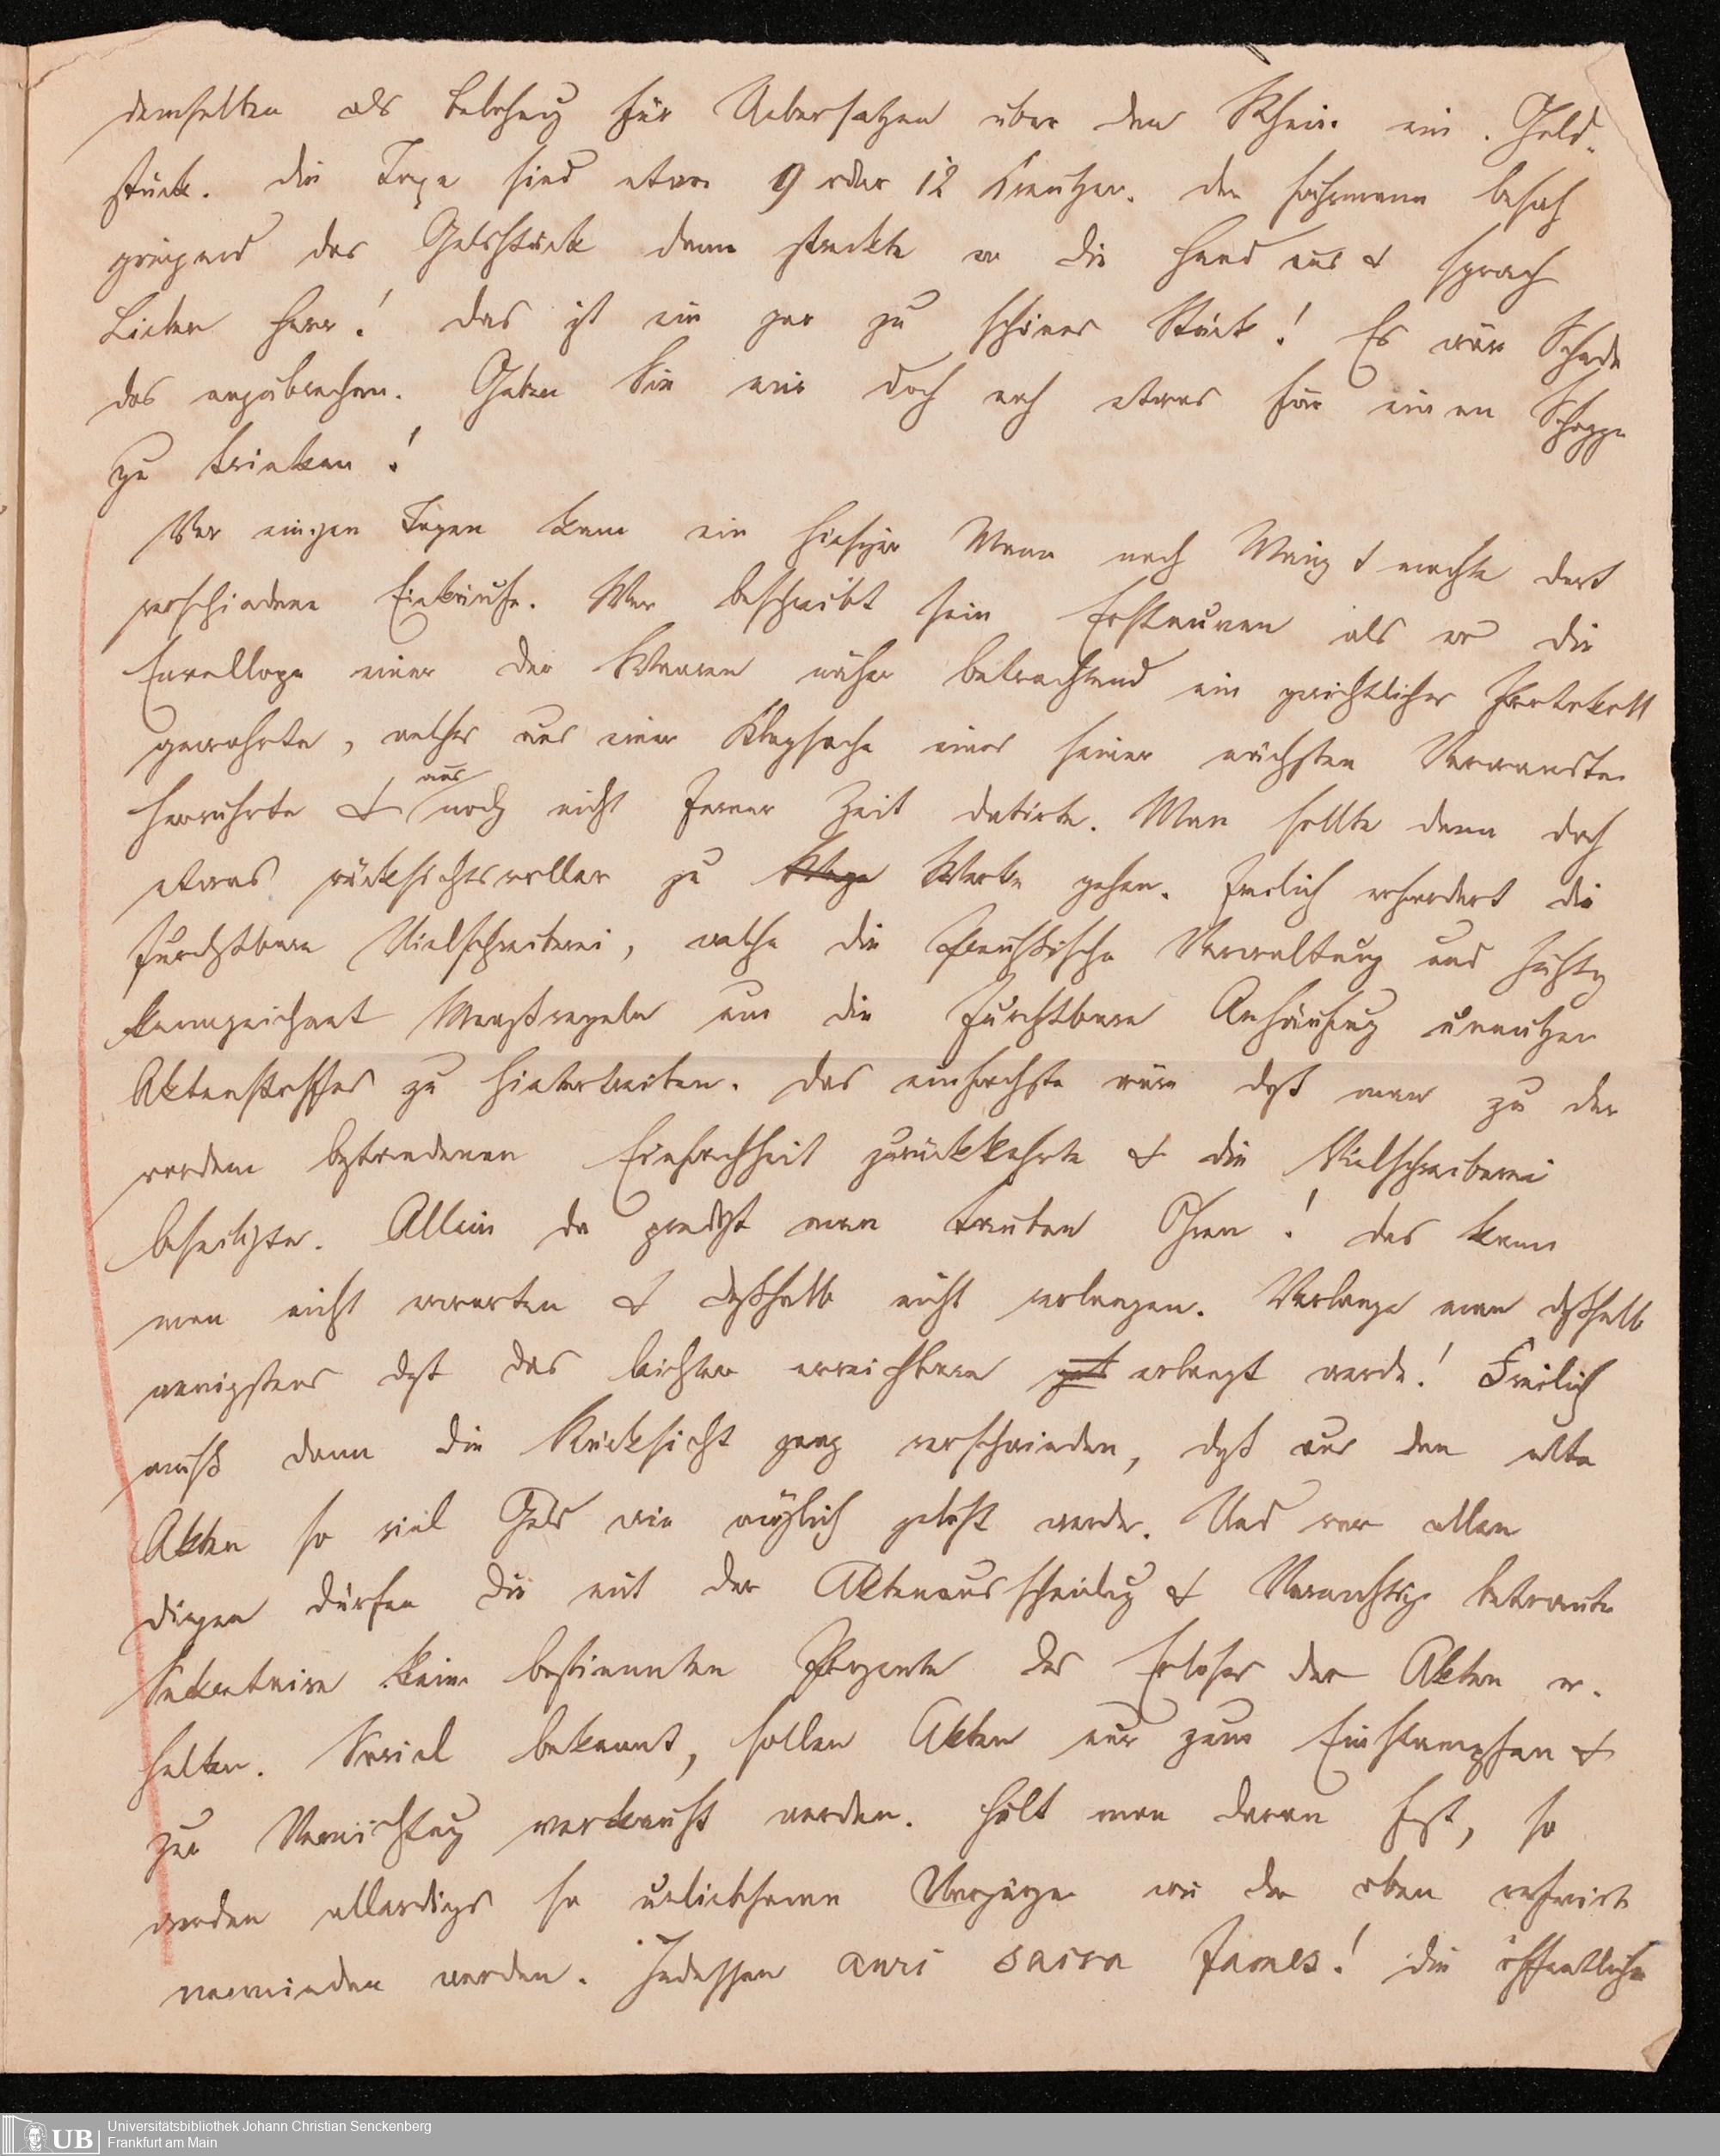 demselben als Belohng für Uebersetzen über den Rhein ein Geld-
stück. Die Taxe sind etwa 9 oder 12 Kreutzer. Der Fährmann besah
grinzend das Geldstück dann streckte er die Hand aus & sprach
Lieber Herr! Das ist ein gar zu schönes Stück! Es wär Schade
das anzubrechen. Geben Sie mir doch noch etwas für einen Schoppe
zu trinken!
Vor einigen Tagen kam ein hiesiger Mann nach Mainz & machte dort
verschiedene Einkäufe. Wer beschreibt sein Erstaunen als er die
Envellope einer der Waaren näher betrachtend ein gerichtliches Protokoll
gewahrte, welches aus einer Klagsache eines seiner nächsten Verwandten
herrührte & aus noch nicht ferner Zeit datirte. Man sollte denn doch
etwas rücksichtsvoller zu Werke gehen. Freilich erfordert die
furchtbare Vielschreiberei, welche die Preußische Verwaltung und Justiz
kennzeichnet Maaßregeln um die furchtbare Anhäufung unnützen
Aktenstoffes zu hintertreiben. Das einfachste wäre daß man zu der
vordem bestandenen Einfachheit zurückkehrte & die Vielschreiberei
beseitigte. Allein da predigt man tauben Ohren! Das kann
man nicht erwarten & deßhalb nicht verlangen. Verlange man deßhalb
wenigstens daß das leichter erreichbare erlangt werde! Freilich
muß dann die Rücksicht ganz verschwinden, daß aus den alten
Akten so viel Geld wie möglich gelöst werde. Und vor allen
Dingen dürfen die mit der Aktenausscheidug & Vernichtug betrauten
Sekretaire keine bestimmten Prozente des Erlöses der Akten er-
halten. Soviel bekannt, sollen Akten nur zum Einstampfen &
zur Vernichtug verkauft werden. Hält man daran fest, so
werden allerdigs so unliebsame Vorgänge wie der oben referirte
vermieden werden. Indessen auri sacra fames! Die öffentliche
Universitätsbibliothek Johann Christian Senckenberg
Frankfurt am Main
UB